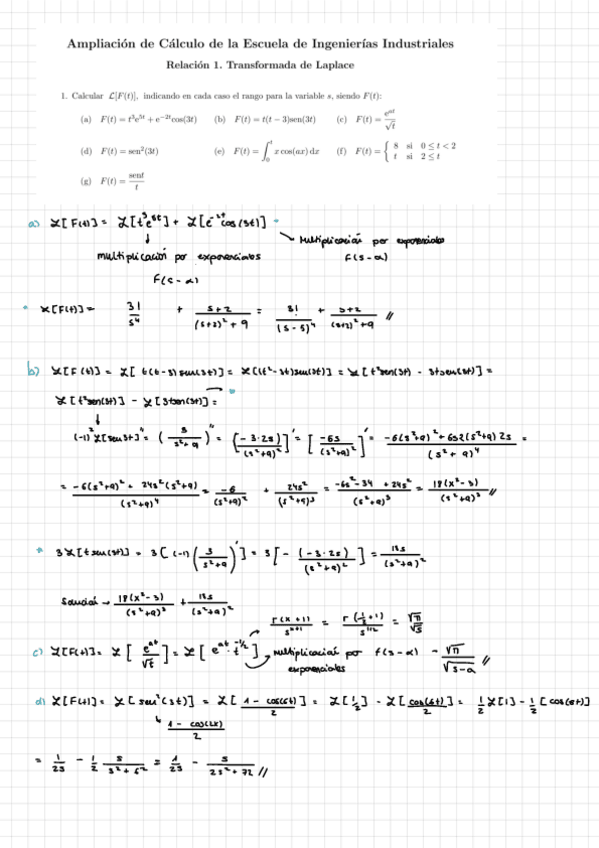 Ampliación de Cálculo de la Escuela de Ingenierías Industriales
Relación 1. Transformada de Laplace
1. Calcular ℒ[F(t)], indicando en cada caso el rango para la variable s, siendo F(t):
(a) F(t) = t³e^{5t} + e^{−2t}cos(3t) (b) F(t) = t(t − 3)sen(3t) (c) F(t) = e^{at}/√t
(d) F(t) = sen²(3t) (e) F(t) = ∫₀ᵗ x cos(ax) dx (f) F(t) = { 8 si 0 ≤ t < 2 / t si 2 ≤ t
(g) F(t) = sent/t
a) ℒ[F(t)] = ℒ[t³e^{5t}] + ℒ[e^{-2t}cos(3t)] *
multiplicación por exponenciales
F(s-α)
multiplicación por exponenciales
F(s-α)
* ℒ[F(t)] = 3!/s⁴ + (s+2)/((s+2)²+9) = 3!/(s-5)⁴ + (s+2)/((s+2)²+9) //
b) ℒ[F(t)] = ℒ[t(t-3)sen(3t)] = ℒ[(t²-3t)sen(3t)] = ℒ[t²sen(3t) - 3tsen(3t)] =
ℒ[t²sen(3t)] - ℒ[3tsen(3t)] = *
(-1)² ℒ[sen3t]'' = (3/(s²+9))'' = [(-3·2s)/(s²+9)²]' = [-6s/(s²+9)²]' = (-6(s²+9)²+6s2(s²+9)2s)/(s²+9)⁴
= (-6(s²+9)²+24s²(s²+9))/(s²+9)⁴ = -6/(s²+9)² + 24s²/(s²+9)³ = (-6s²-54+24s²)/(s²+9)³ = 18(x²-3)/(s²+9)³ //
* 3ℒ[tsen(3t)] = 3[(-1)(3/(s²+9))'] = 3[-(-3·2s)/(s²+9)²] = 18s/(s²+9)²
Solución → 18(x²-3)/(s²+9)³ + 18s/(s²+9)²
Γ(x+1)/s^{x+1} = Γ(-1/2+1)/s^{1/2} = √π/√s
c) ℒ[F(t)] = ℒ[e^{at}/√t] = ℒ[e^{at}·t^{-1/2}] → multiplicación por exponenciales f(s-α) → √π/√(s-a) //
d) ℒ[F(t)] = ℒ[sen²(3t)] = ℒ[(1-cos(6t))/2] = ℒ[1/2] - ℒ[cos(6t)/2] = 1/2 ℒ[1] - 1/2 [cos(6t)]
↳ (1-cos(2x))/2
= 1/2s - 1/2 s/(s²+6²) = 1/2s - s/(2s²+72) //